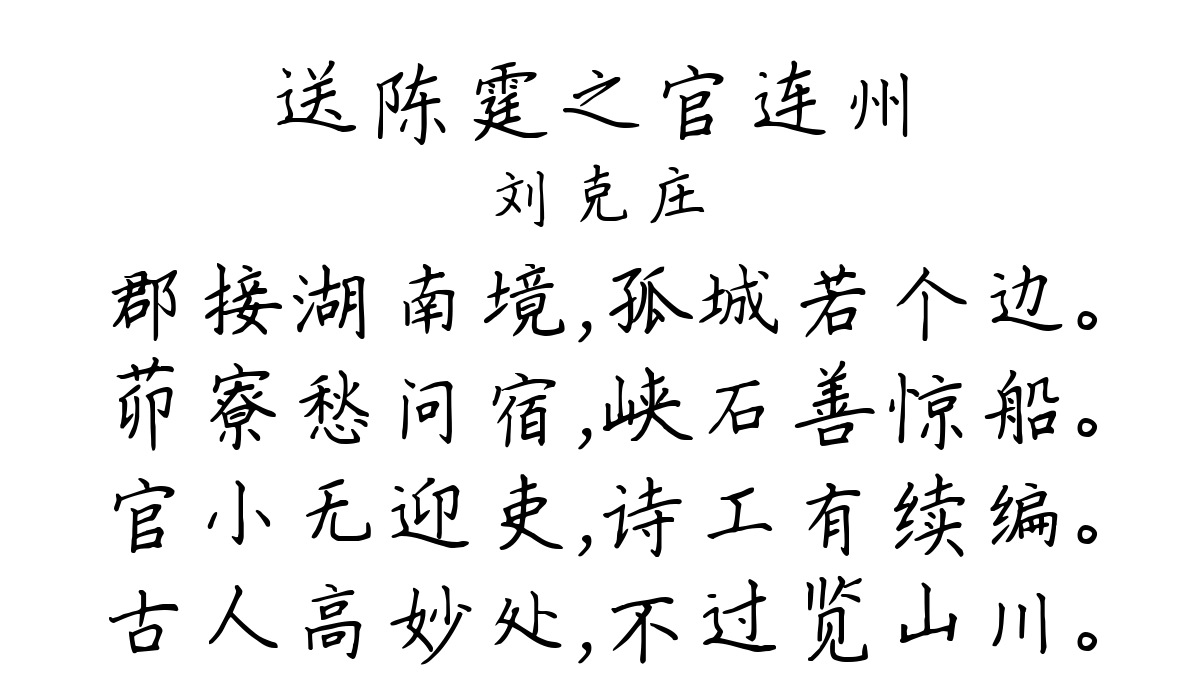 送陈霆之官连州
刘克庄
郡接湖南境,孤城若个边。
茆寮愁问宿,峡石善惊船。
官小无迎吏,诗工有续编。
古人高妙处,不过览山川。